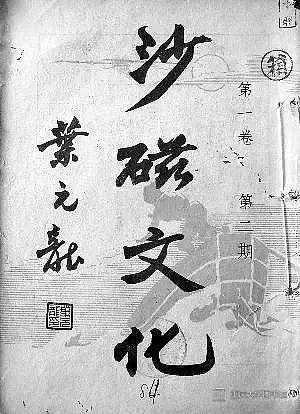 第一卷 第二期
沙磁文化
葉元龍
84